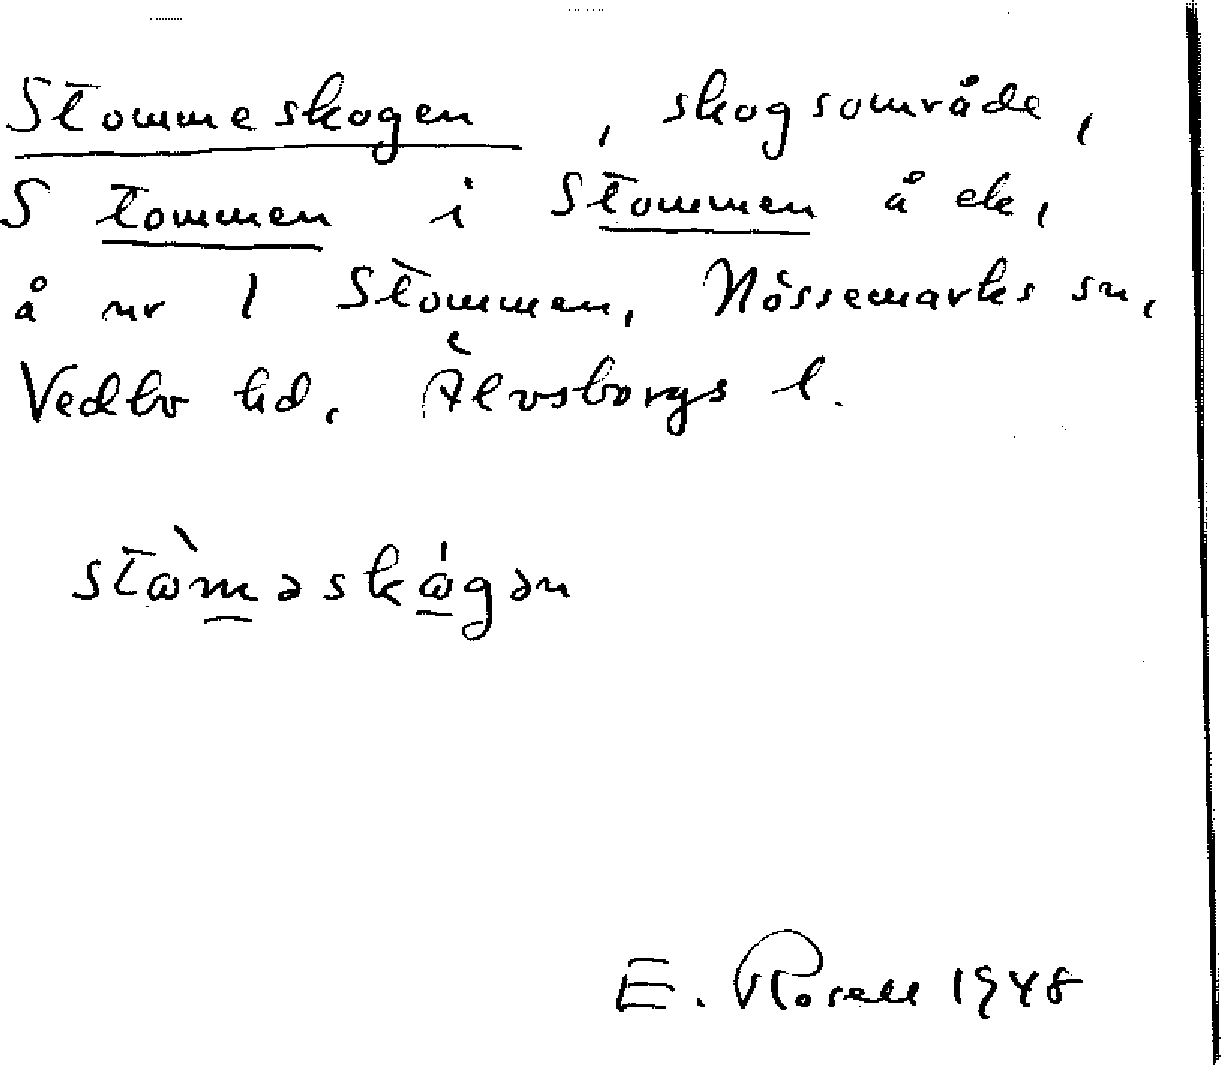 Stommeskogen, skogsområde,
S tommen i Stommen å ek,
å nr 1 Stommen, Nössemarks sn,
Vedbo hd, Älvsborgs l.
E. Rosell 1948